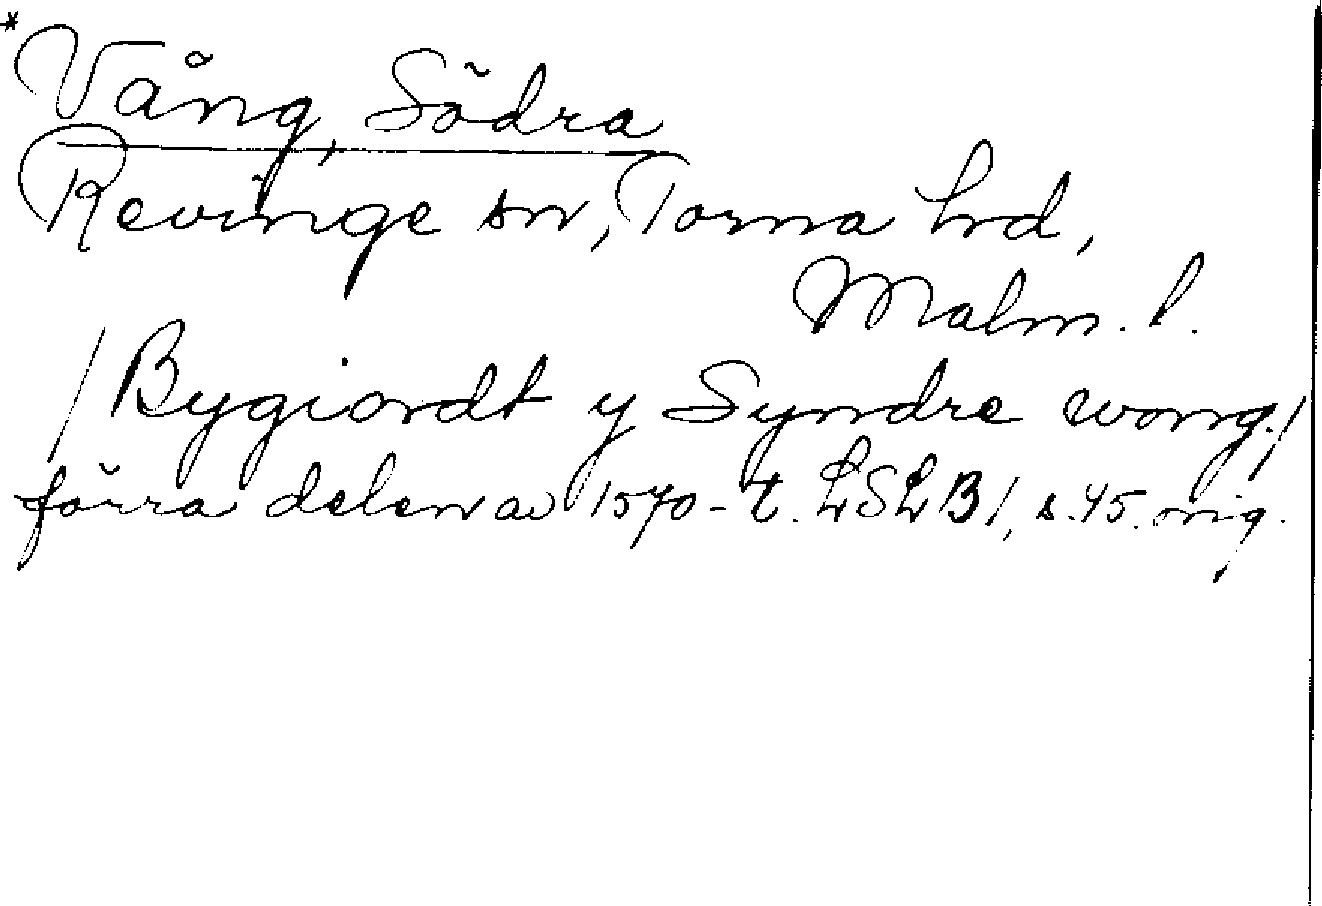 *Vång, Södra
Revinge sn, Torna hrd,
Malm. l.
/Bygiordt y Syndre wong./
förra delen av 1570-t. LSLB1, s. 45. orig.